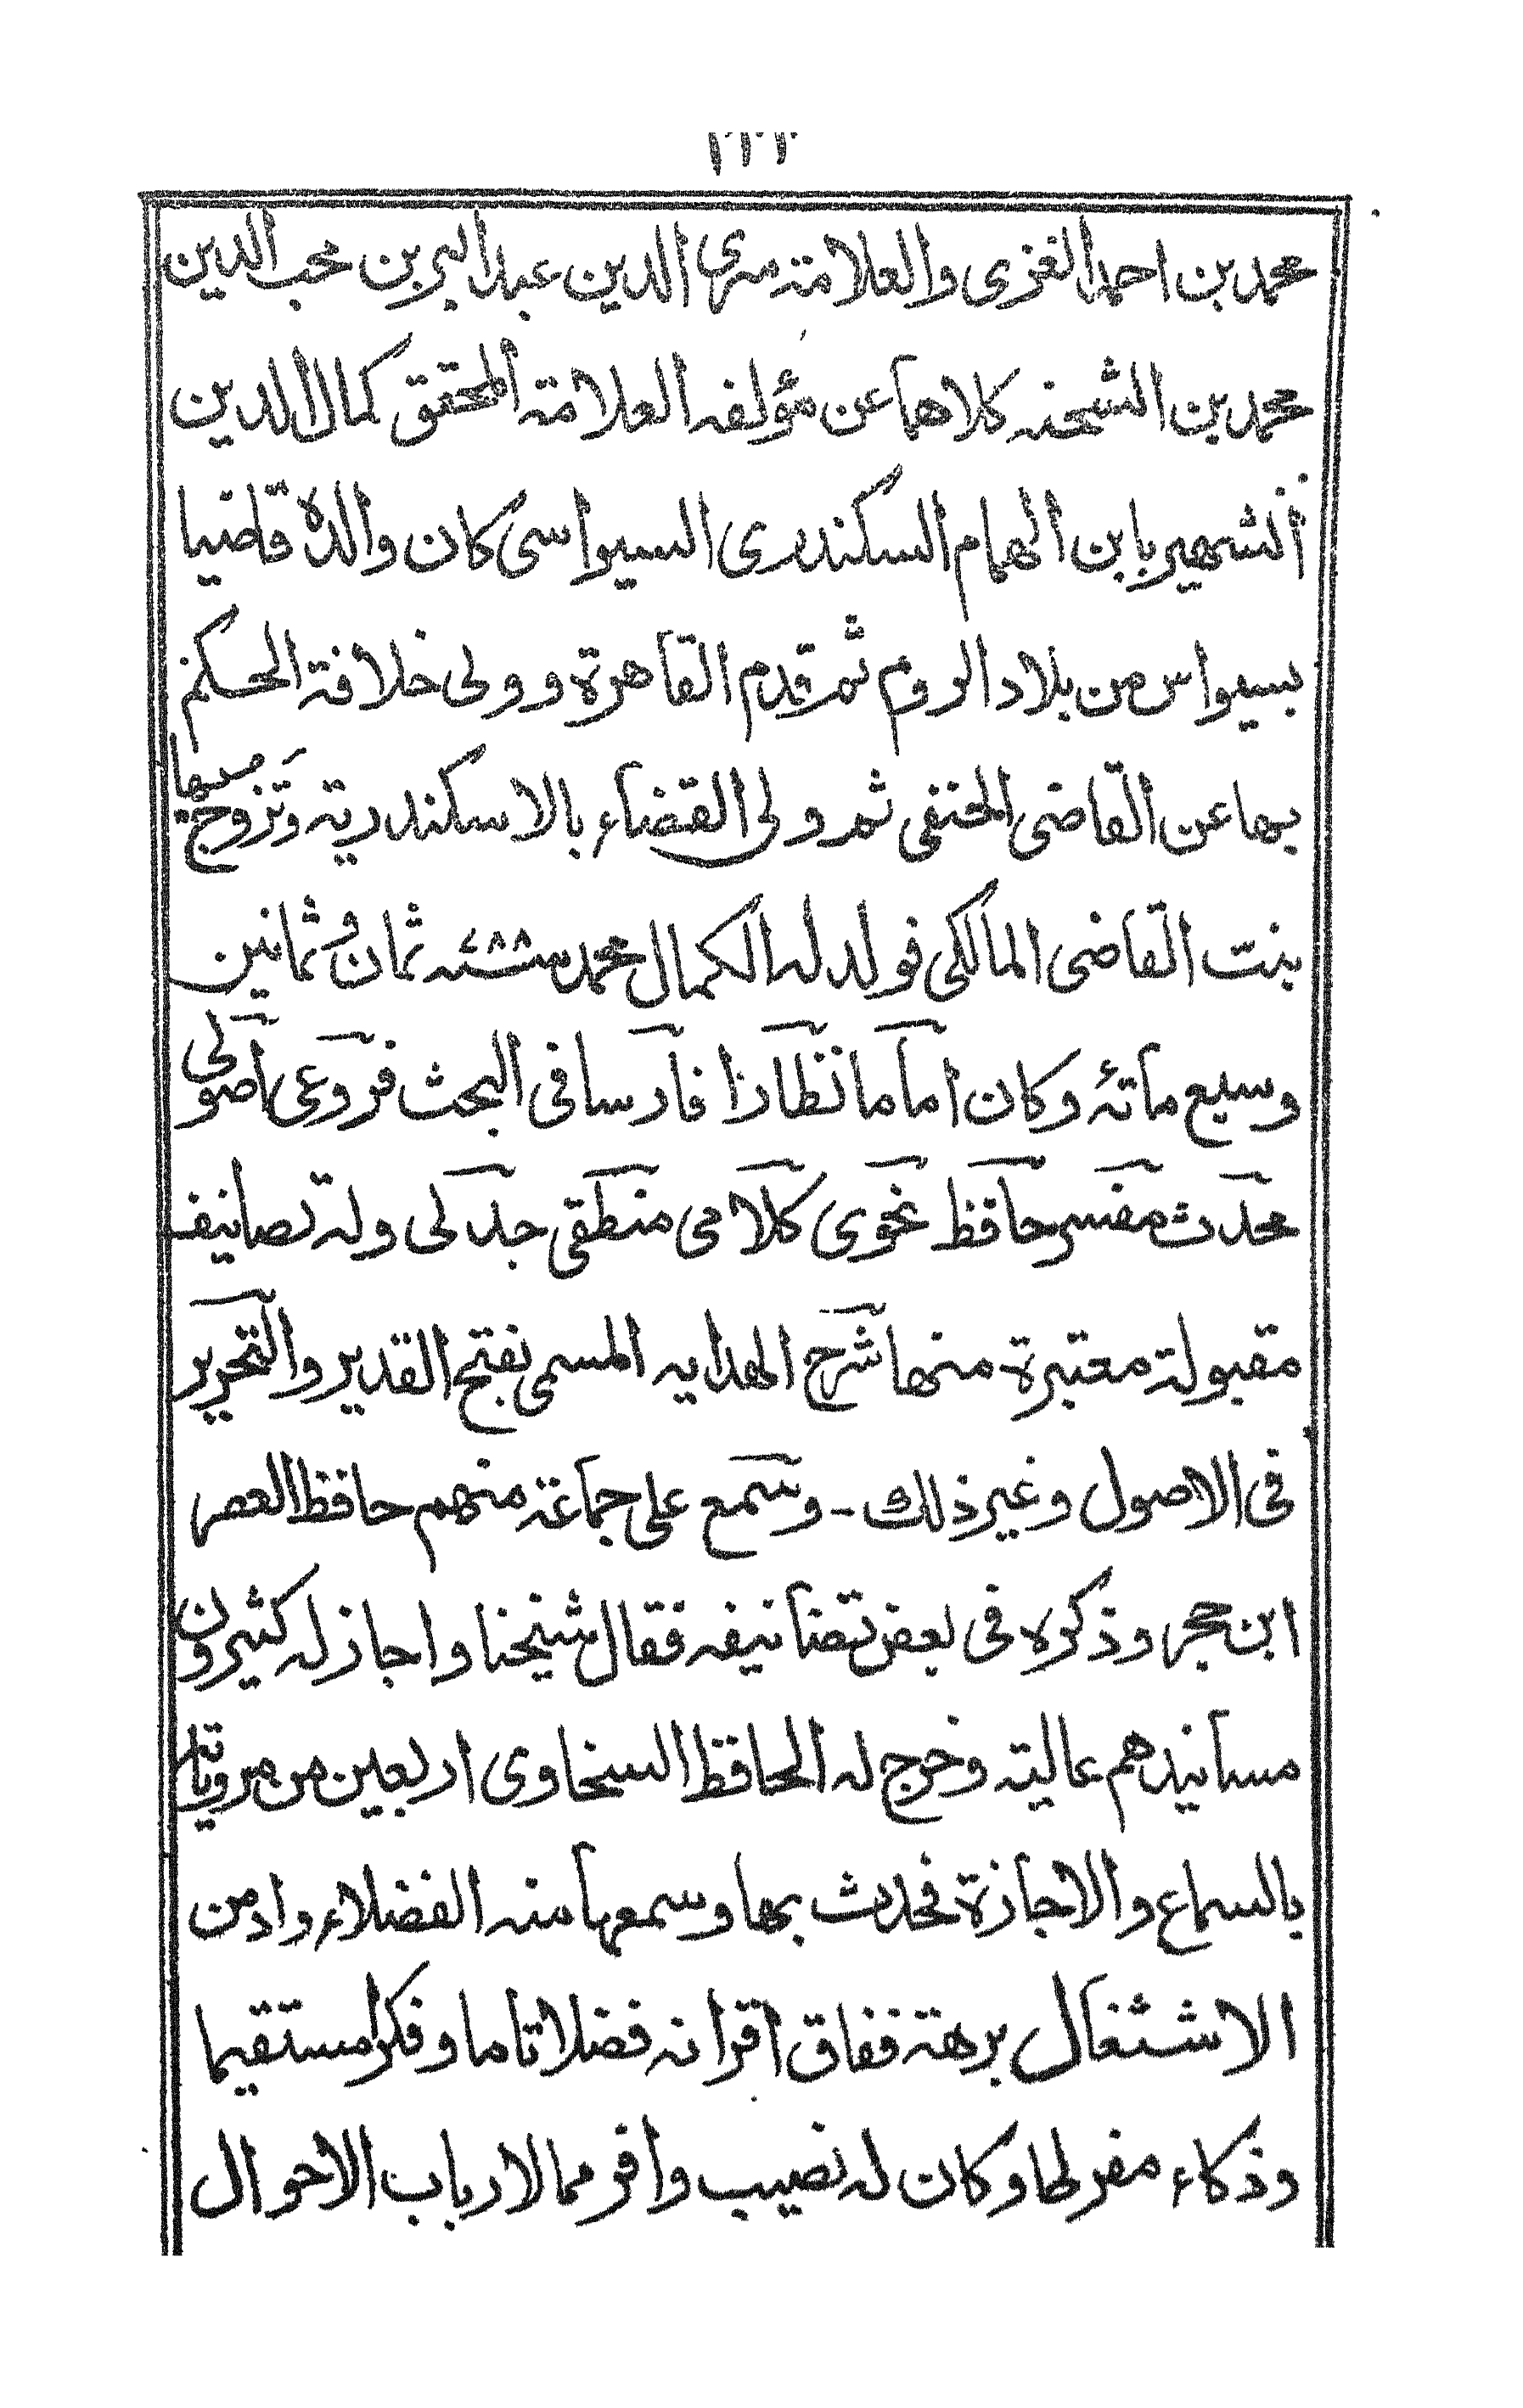 محمد بن احمد الغزى والعلامة سرى الدين عبد البر بن محب الدين
محمد بن الشحنه كلاهما عن مؤلفه العلامة المحقق كمال الدين
الشهير بابن الهمام السكندرى السيواسى كان والده قاضيا
بسيواس من بلاد الروم ثم قدم القاهرة و ولى خلافة الحكم
بها عن القاضى الحنفى ثم ولى القضاء بالاسكندرية وتزوج بها
بنت القاضى المالكى فولد له الكمال محمد سنة ٧٨٨ ثمان وثمانين
وسبع مأئة وكان اماما نظارا فارسا فى البحث فروعى اصولى
محدث مفسر حافظ نحوى كلامى منطقى جدلى وله تصانيف
مقبولة معتبرة منها شرح الهدايه المسمى بفتح القدير والتحرير
فى الاصول وغير ذلك - وسمع على جماعة منهم حافظ العصر
ابن حجر وذكره فى بعض تصانيفه فقال شيخنا واجاز له كثيرون
مسانيدهم عالية وخرج له الحافظ السخاوى اربعين من مروياته
بالسماع والاجازة فحدث بها وسمعها منه الفضلاء وادمن
الاشتغال برهة ففاق اقرانه فضلا تاما وفكرا مستقيما
وذكاء مفرطا وكان له نصيب وافر مما لارباب الاحوال